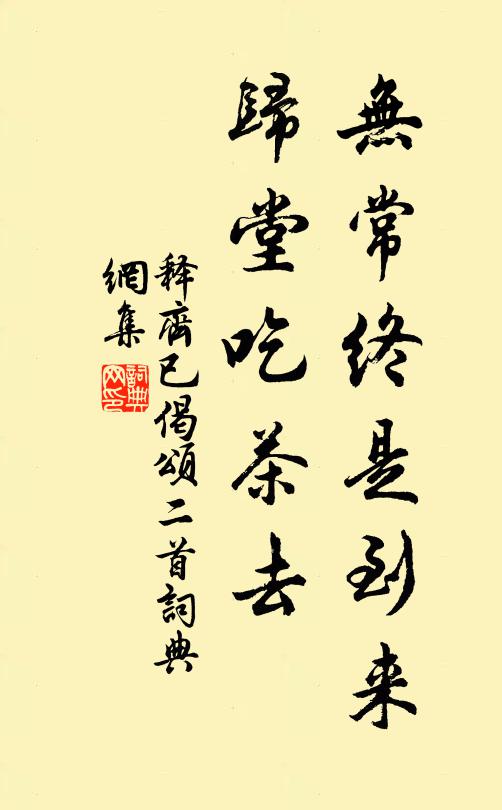 無常終是到来
歸堂吃茶去
释齊已偈頌二首詞典
網集
詞典网印